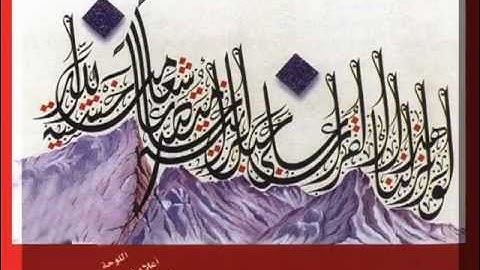 لو أنزلنا هذا القرآن على جبل لرأيته خاشعا متصدعا من خشية الله
اللوحة